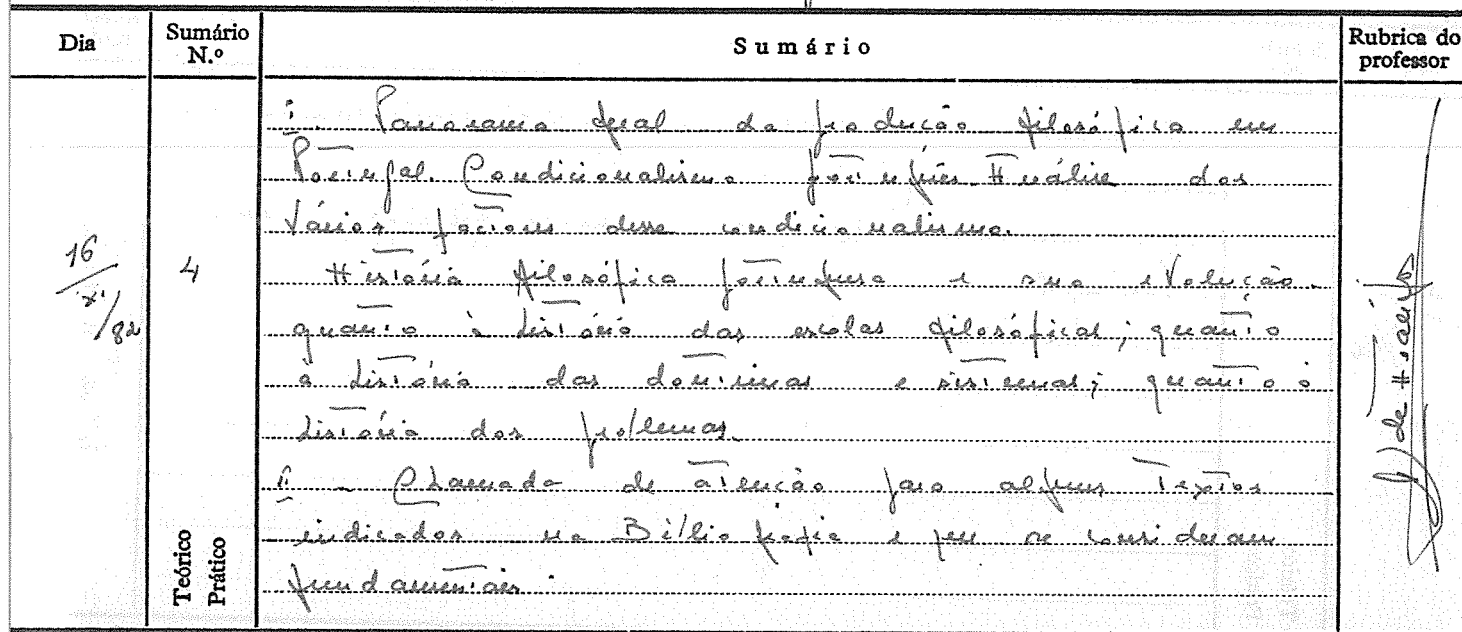 Dia
Sumário N.º
Sumário
Rubrica do professor
16/XI/82
4
Teórico Prático
i. Panorama geral da produção filosófica em
Portugal. Condicionalismo português. Análise dos
vários factores desse condicionalismo.
História filosófica portuguesa e sua evolução.
quanto à história das escolas filosóficas; quanto
à história das doutrinas e sistemas; quanto à
história dos problemas.
ii - Chamada de atenção para alguns textos
indicados na Bibliografia e que se consideram
fundamentais.